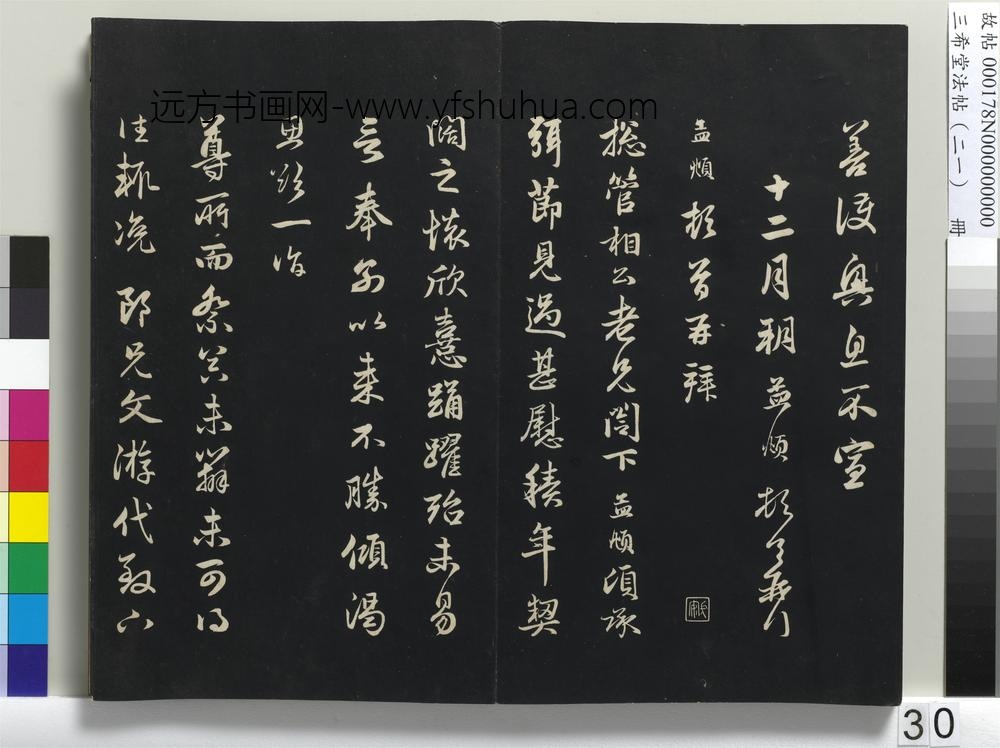 善護興居不宣
十二月朔孟頫頓首再拜
孟頫頓首再拜
總管相公老兄閤下孟頫頃承
弭節見過甚慰積年契
闊之懷欣憙踊躍殆未易
言奉別以來不勝傾渴
思欲一詣
尊所而參差未辦未可得
佳輒浼郎兄文游代致六
远方书画网-www.yfshuhua.com
故帖 000178N000000000
三希堂法帖(二一) 冊
30